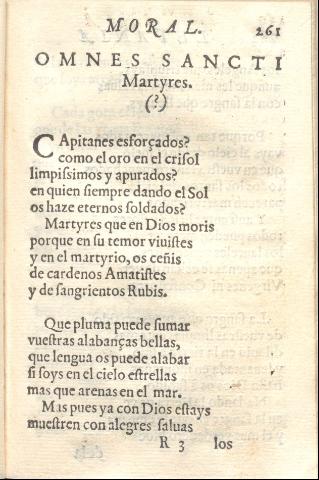 MORAL. 261
OMNES SANCTI
Martyres.
(?)
CApitanes esforçados?
como el oro en el crisol
limpissimos y apurados?
en quien siempre dando el Sol
os haze eternos soldados?
Martyres que en Dios moris
porque en su temor viuistes
y en el martyrio, os ceñis
de cardenos Amatistes
y de sangrientos Rubis.
Que pluma puede sumar
vuestras alabanças bellas,
que lengua os puede alabar
si soys en el cielo estrellas
mas que arenas en el mar.
Mas pues ya con Dios estays
muestren con alegres saluas
R 3 los